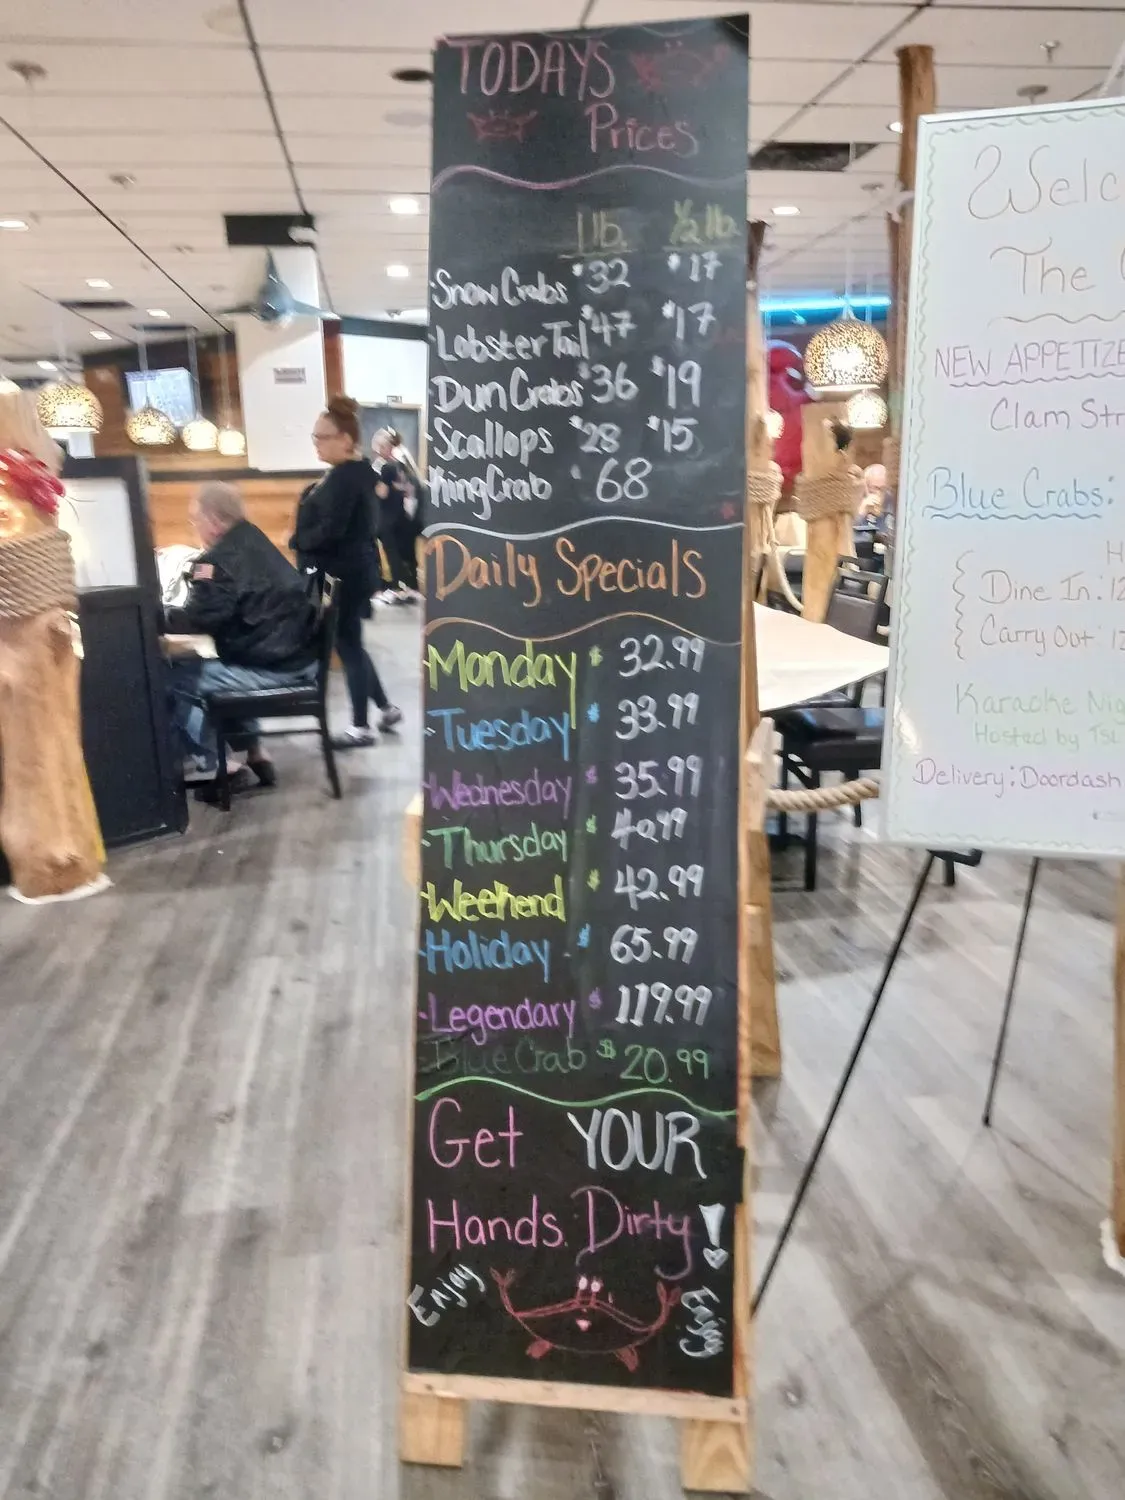 TODAYS
Prices
1 lb. 1/2 lb.
·Snow Crabs $32 $17
·Lobster Tail $47 $17
·Dun Crabs $36 $19
·Scallops $28 $15
·King Crab 68
Daily Specials
·Monday $32.99
·Tuesday $33.99
·Wednesday $35.99
·Thursday $40.99
·Weekend $42.99
·Holiday $65.99
·Legendary $119.99
·Blue Crab $20.99
Get YOUR
Hands Dirty!
Enjoy
Welc
The
NEW APPETIZE
Clam Str
Blue Crabs:
H
Dine In: 12
Carry Out 12
Karaoke Nig
Hosted by TSL
Delivery: Doordash